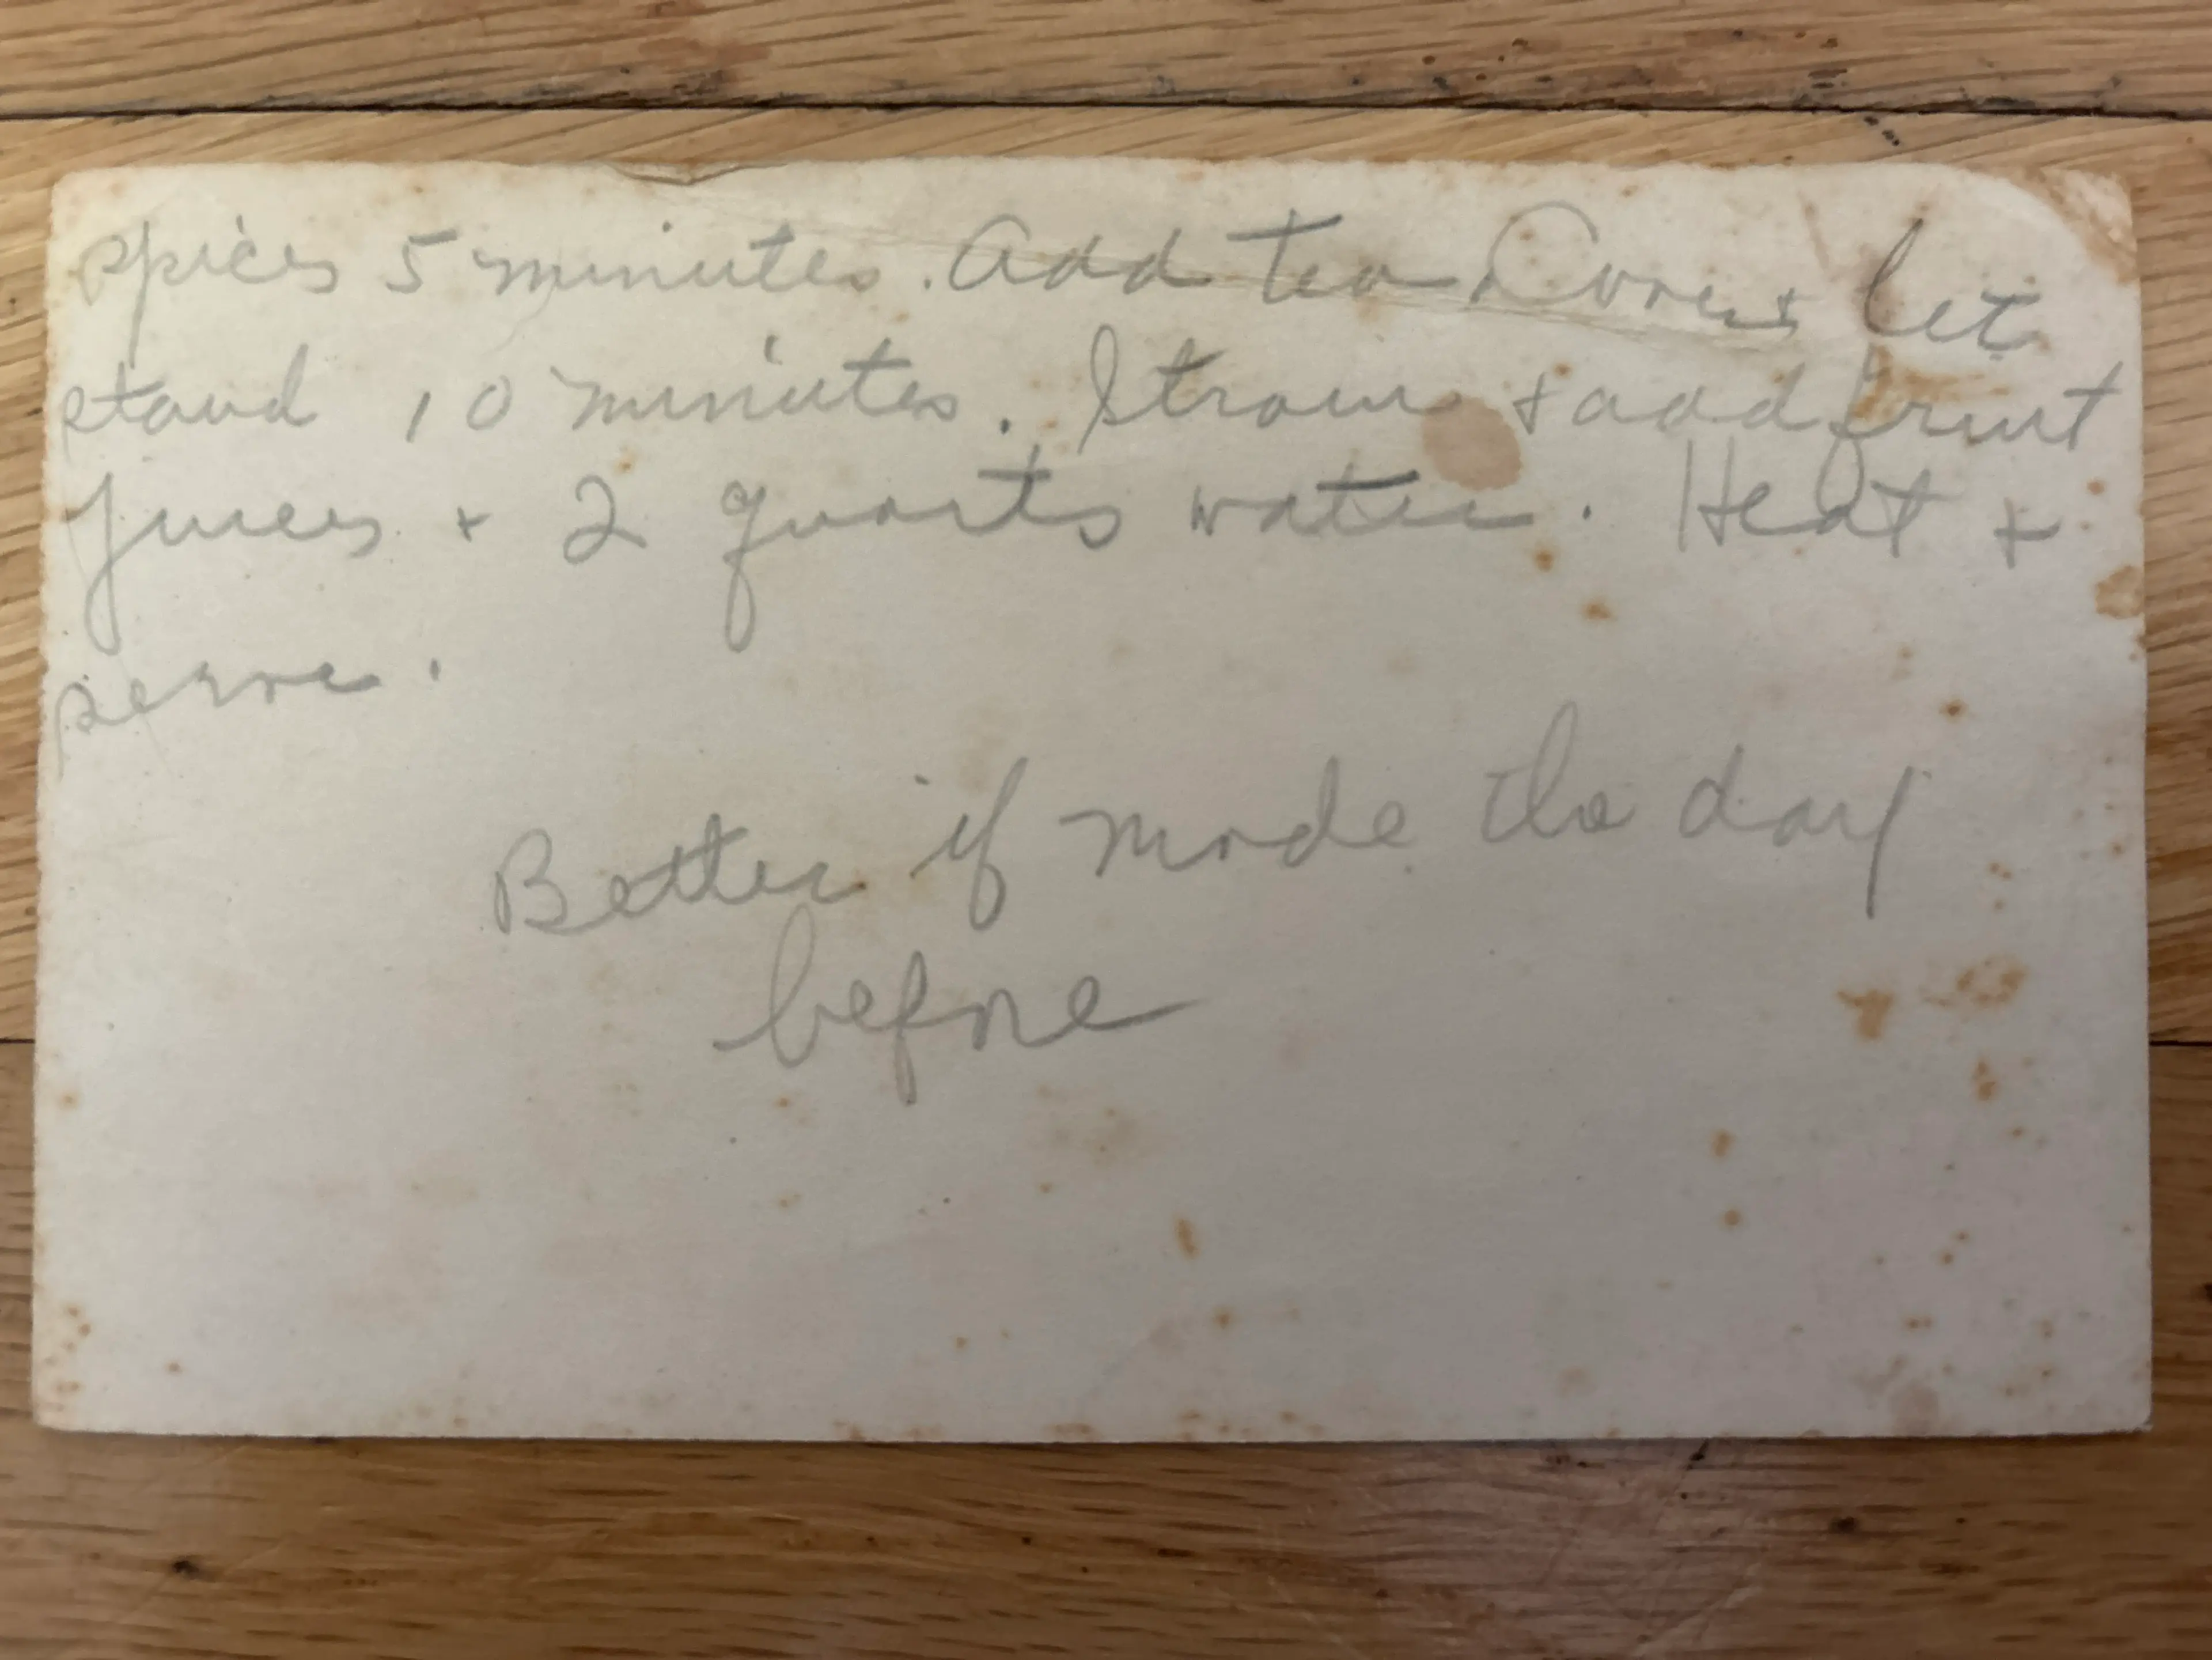 spices 5 minutes. Add tea. Cover + let
stand 10 minutes. Strain + add fruit
juices + 2 quarts water. Heat +
serve.
Better if made the day
before